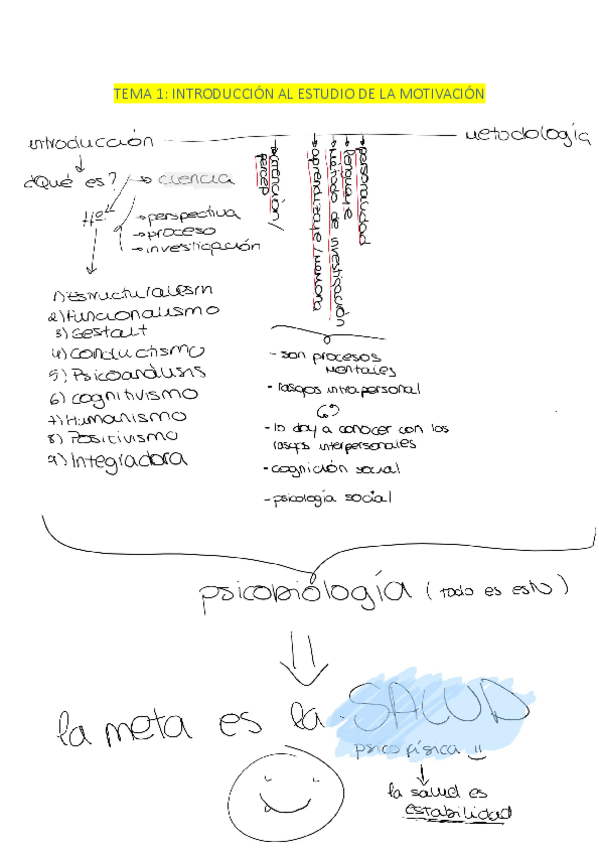 TEMA 1: INTRODUCCIÓN AL ESTUDIO DE LA MOTIVACIÓN
introducción
metodología
¿Qué es? → ciencia
Hª
→ perspectiva
→ proceso
→ investigación
atención /
percep
aprendizaje / memoria
método de investigación
lenguaje
personalidad
1) Estructuralism
2) Funcionalismo
3) Gestalt
4) Conductismo
5) Psicoanálisis
6) cognitivismo
7) Humanismo
8) Positivismo
9) Integradora
- son procesos
mentales
- rasgos intrapersonal
- lo doy a conocer con los
rasgos interpersonales
- cognición social
- psicología social
psicobiología (todo es esto)
la meta es la SALUD
psicofísica
la salud es
estabilidad